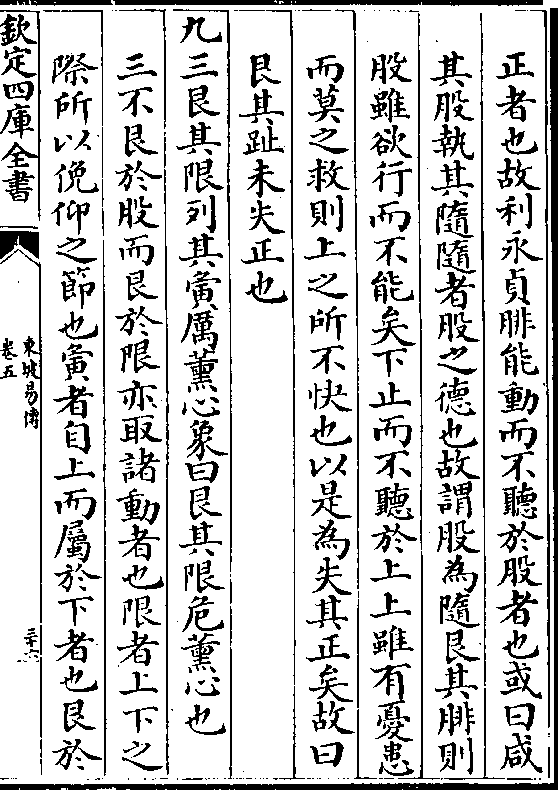 正者也故利永貞腓能動而不聽於股者也或曰咸
其股執其隨隨者股之德也故謂股為隨艮其腓則
股雖欲行而不能矣下止而不聽於上上雖有憂患
而莫之救則上之所不快也以是為失其正矣故曰
艮其趾未失正也
九三艮其限列其夤厲薰心象曰艮其限危薰心也
三不艮於股而艮於限亦取諸動者也限者上下之
際所以俛仰之節也夤者自上而屬於下者也艮於
欽定四庫全書
東坡易傳
卷五
三十六